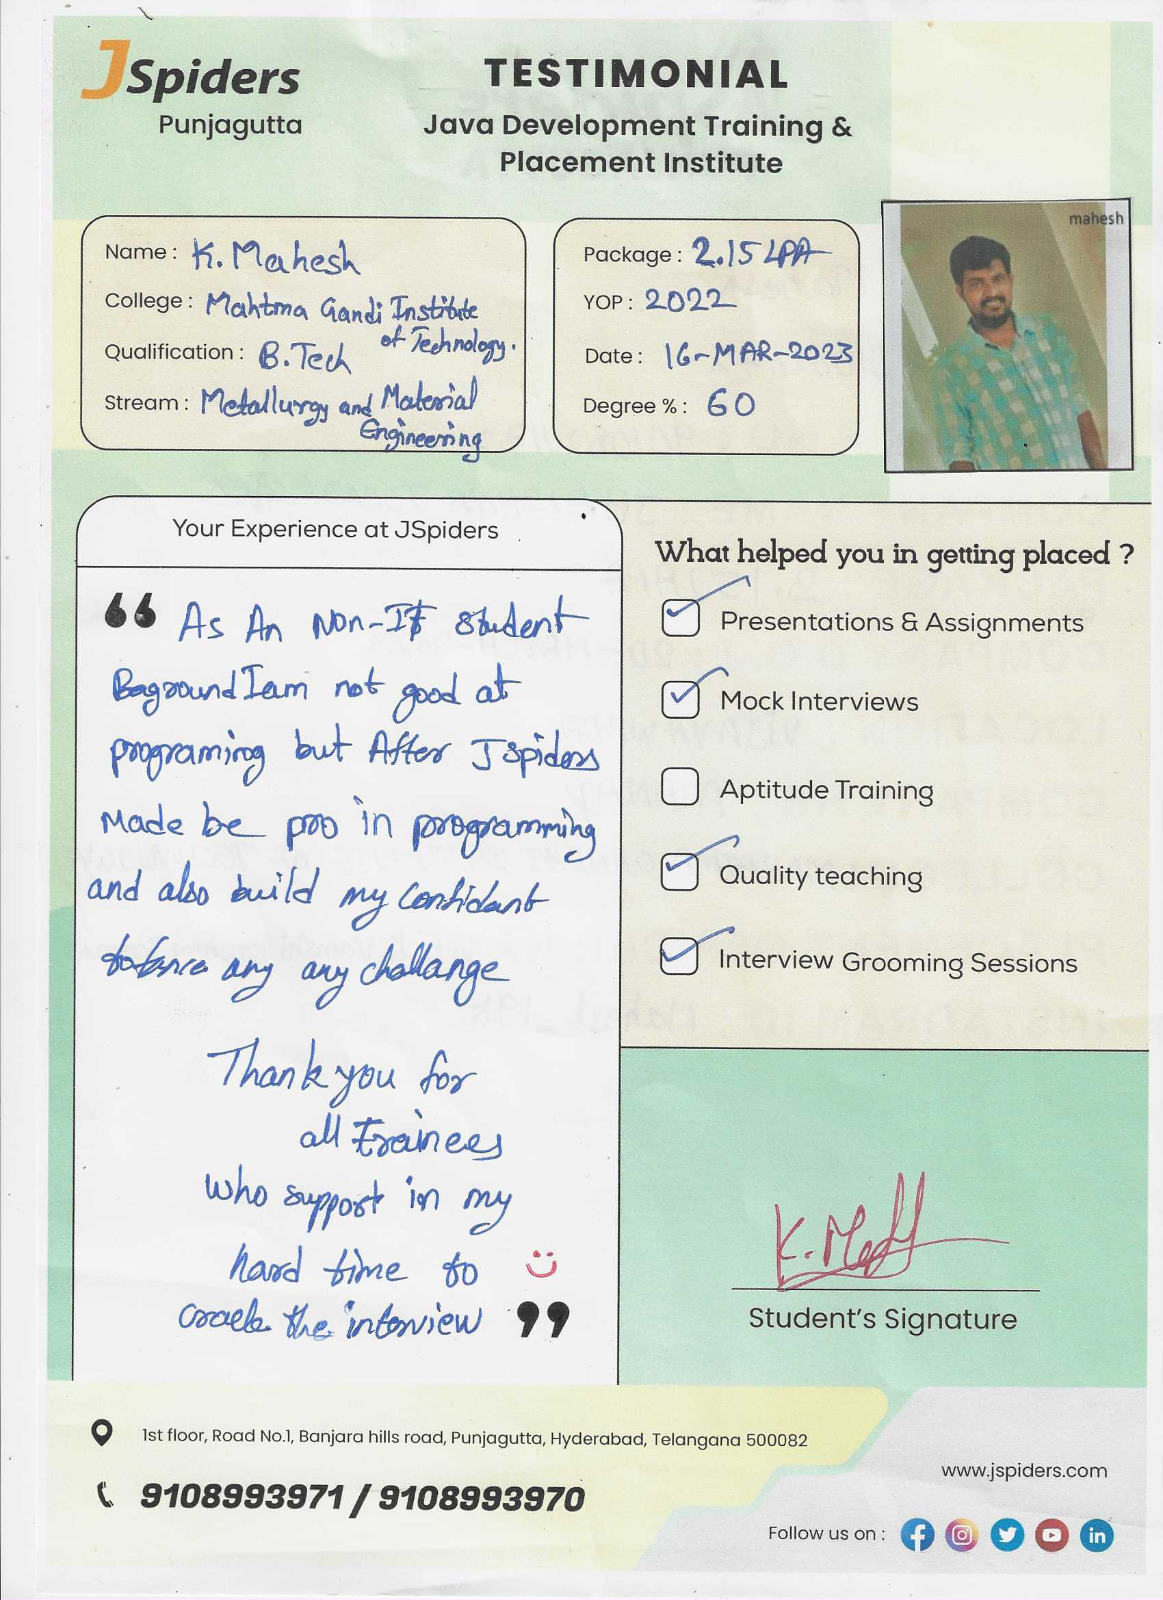 JSpiders
Punjagutta
TESTIMONIAL
Java Development Training &
Placement Institute
Name : K. Mahesh
College : Mahtma Gandi Institute
of Technology.
Qualification : B.Tech
Stream : Metallurgy and Material
Engineering
Package : 2.15 LPA
YOP : 2022
Date : 16-MAR-2023
Degree % : 60
mahesh
Your Experience at JSpiders
“ As An Non-IT Student
Baground Iam not good at
programing but After Jspiders
Made be pro in programming
and also build my confidant
any any challange
Thank you for
all trainees
who support in my
hard time to
crack the interview ”
What helped you in getting placed ?
Presentations & Assignments
Mock Interviews
Aptitude Training
Quality teaching
Interview Grooming Sessions
Student's Signature
1st floor, Road No.1, Banjara hills road, Punjagutta, Hyderabad, Telangana 500082
9108993971 / 9108993970
www.jspiders.com
Follow us on :